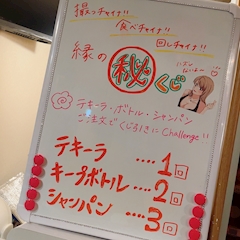 撮っチャイナ!!
食べチャイナ!!
回しチャイナ!!
縁の㊙くじ
ハズレ
ないよー
テキーラ・ボトル・シャンパン
ご注文でくじ引きに Challenge!!
テキーラ ････ 1回
キープボトル ････ 2回
シャンパン ････ 3回